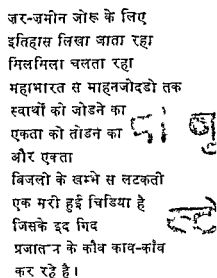 ज़र-ज़मीन जोरू के लिए
इतिहास लिखा जाता रहा
मिलमिला चलता रहा
महाभारत स माहनजोदडो तक
स्वार्थों को जोडने का
एकता को तोडने का
और एक्ता
बिजली के खम्भे स लटकती
एक मरी हुई चिडिया है
जिसके इद गिद
प्रजातन्त्र के कौव काव-काँव
कर रहे है।